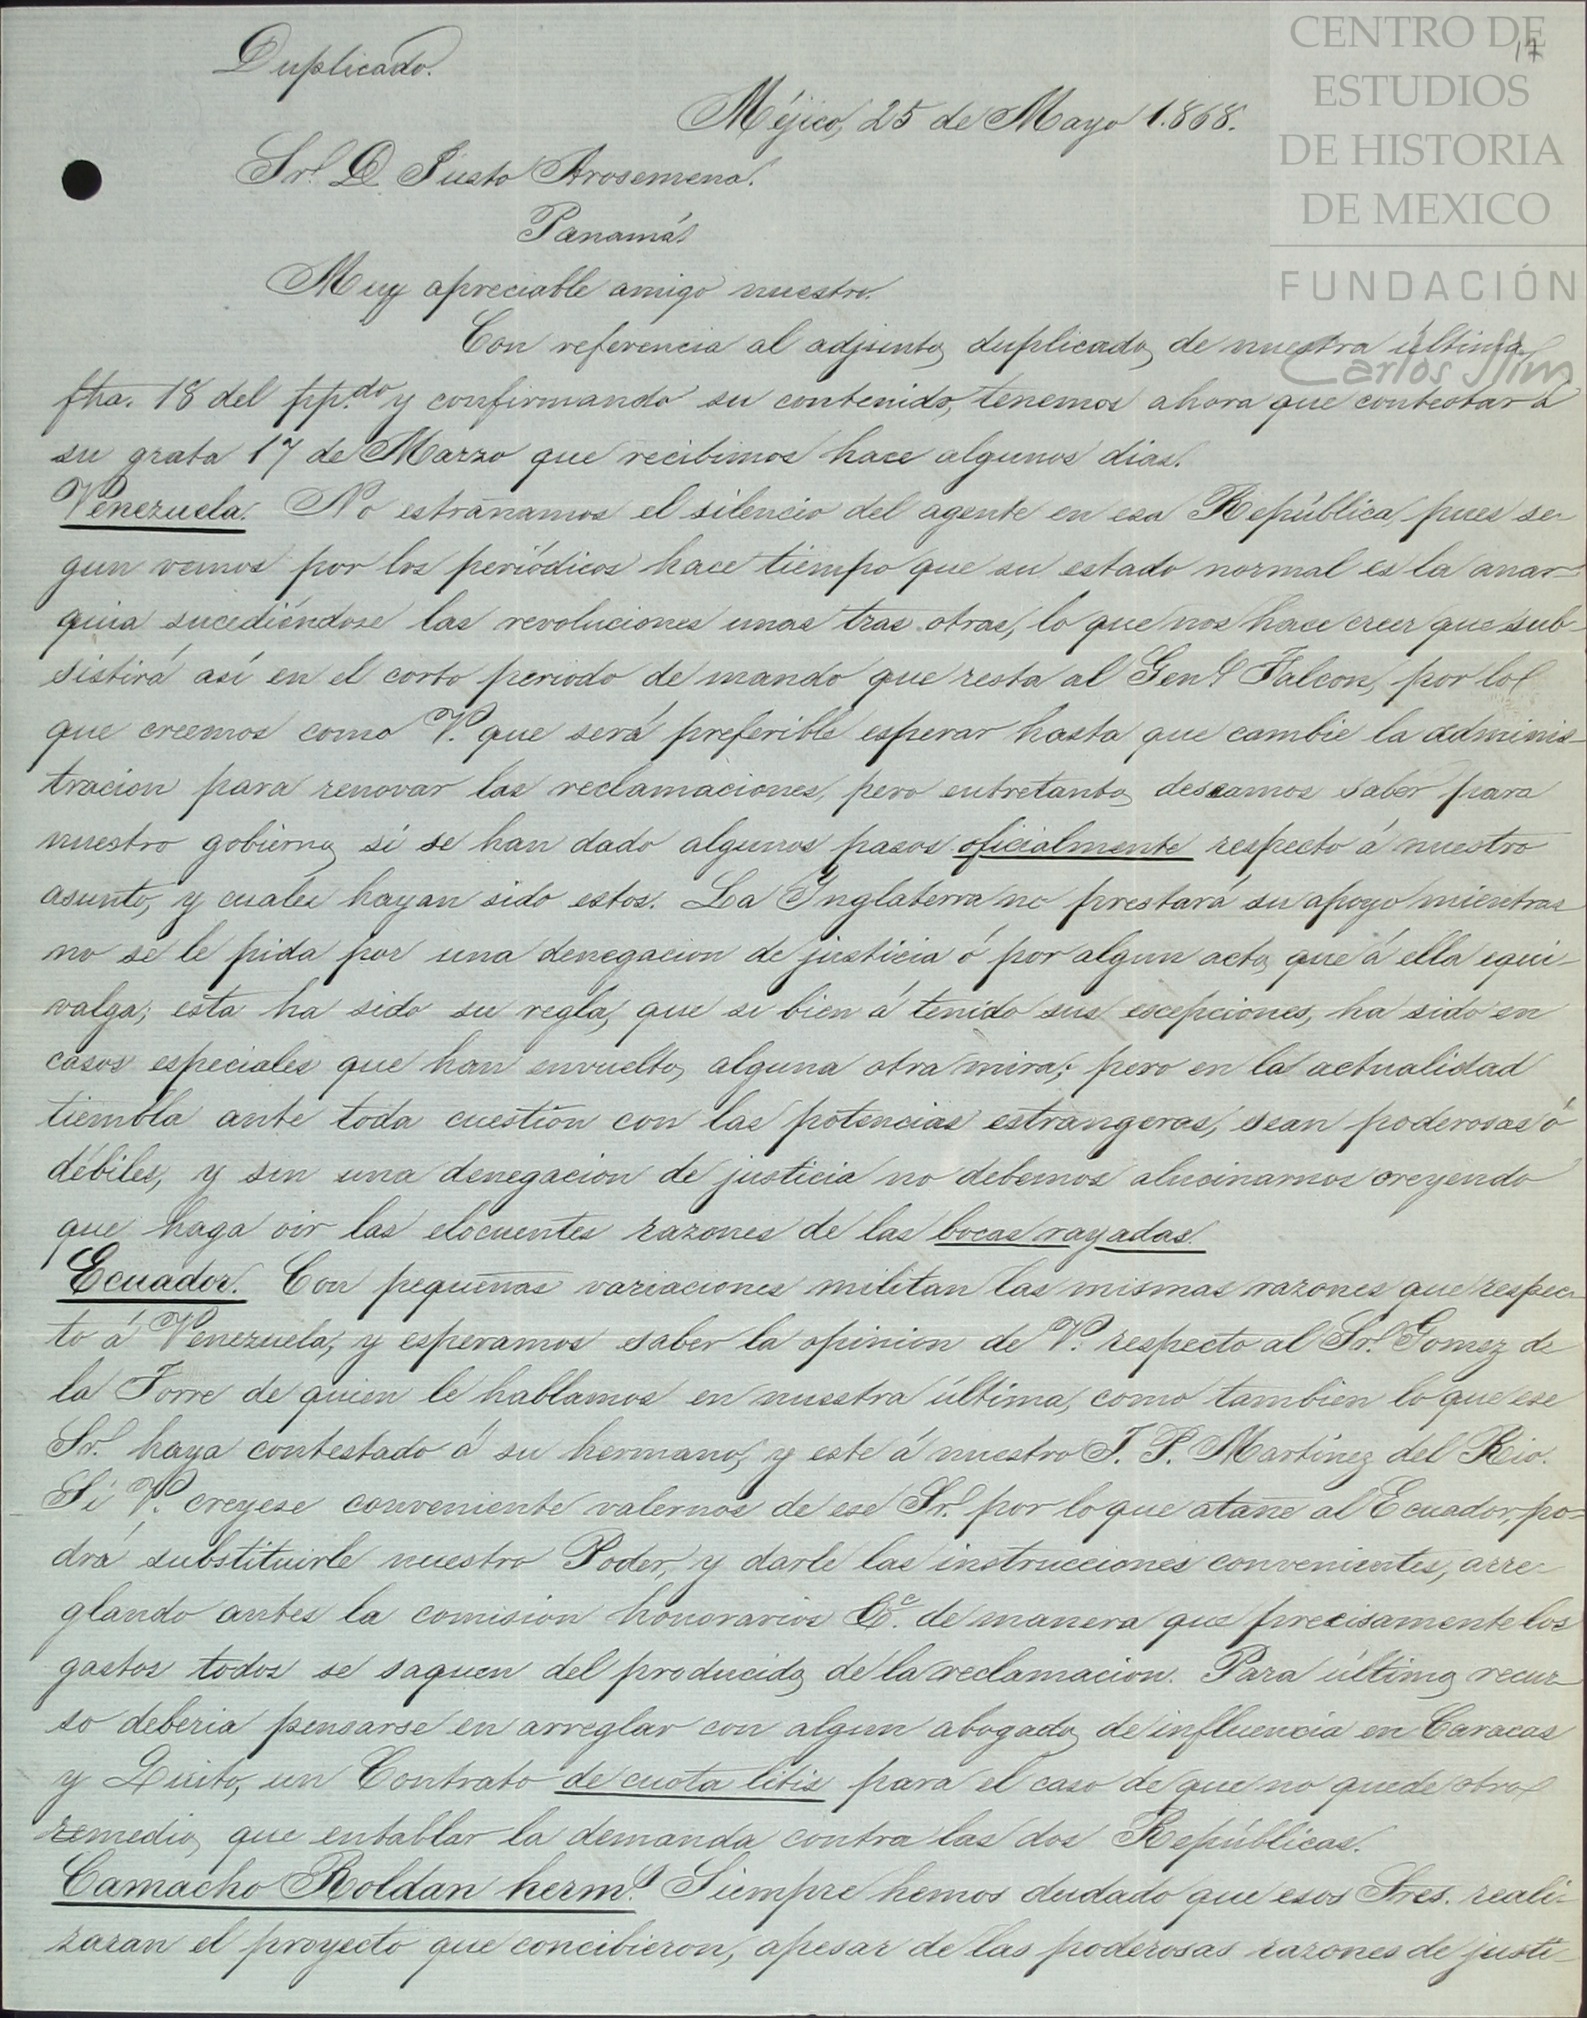 CENTRO DE
ESTUDIOS
DE HISTORIA
DE MEXICO
FUNDACIÓN
Carlos Slim
17
Duplicado.
Méjico, 25 de Mayo 1.868.
Sr. D. Justo Arosemena.
Panamá
Muy apreciable amigo nuestro.
Con referencia al adjunto duplicado de nuestra última
fha. 18 del pp.do y confirmando su contenido, tenemos ahora que contestar á
su grata 17 de Marzo que recibimos hace algunos dias.
Venezuela. No estrañamos el silencio del agente en esa República, pues se-
gun vemos por los periódicos hace tiempo que su estado normal es la anar-
quia sucediéndose las revoluciones unas tras otras, lo que nos hace creer que sub-
sistirá así en el corto periodo de mando que resta al Genl Falcon, por lo
que creemos como V. que será preferible esperar hasta que cambie la adminis-
tracion para renovar las reclamaciones, pero entretanto deseamos saber para
nuestro gobierno si se han dado algunos pasos oficialmente respecto á nuestro
asunto, y cuales hayan sido estos. La Inglaterra no prestará su apoyo mientras
no se le pida por una denegacion de justicia ó por algun acto que á ella equi-
valga; esta ha sido su regla, que si bien á tenido sus escepciones, ha sido en
casos especiales que han envuelto alguna otra mira; pero en la actualidad
tiembla ante toda cuestion con las potencias estrangeras, sean poderosas ó
débiles, y sin una denegacion de justicia no debemos alucinarnos creyendo
que haga oir las elocuentes razones de las bocas rayadas.
Ecuador. Con pequeñas variaciones militan las mismas razones que respec-
to á Venezuela, y esperamos saber la opinion de V. respecto al Sr. Gomez de
la Torre de quien le hablamos en nuestra última, como tambien lo que ese
Sr. haya contestado á su hermano, y este á nuestro J. P. Martínez del Rio.
Si V. creyese conveniente valernos de ese Sr. por lo que atañe al Ecuador, po-
drá substituirle nuestro Poder, y darle las instrucciones convenientes, arre-
glando antes la comision honorarios &c. de manera que precisamente los
gastos todos se saquen del producido de la reclamacion. Para último recur-
so deberia pensarse en arreglar con algun abogado de influencia en Caracas
y Quito, un Contrato de cuota litis para el caso de que no quede otro
remedio que entablar la demanda contra las dos Repúblicas.
Camacho Roldan herms. Siempre hemos dudado que esos Sres. reali-
zaran el proyecto que concibieron, apesar de las poderosas razones de justi-